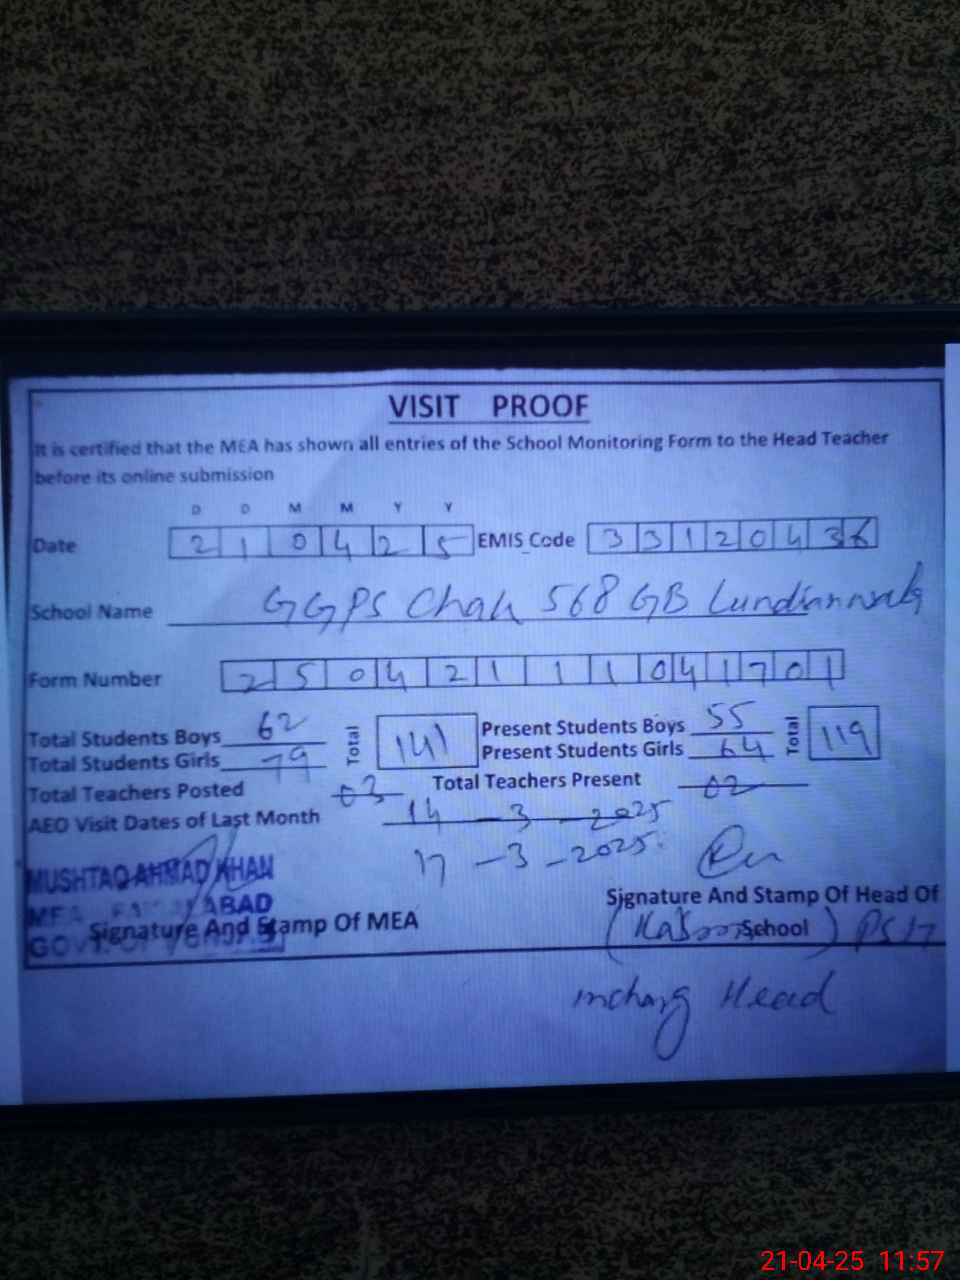 VISIT PROOF
It is certified that the MEA has shown all entries of the School Monitoring Form to the Head Teacher
before its online submission
D D M M Y Y
Date 2 1 0 4 2 5 EMIS Code 3 3 1 2 0 4 3 6
School Name GGPS Chak 568 GB Lundianwala
Form Number 2 5 0 4 2 1 1 1 0 4 1 7 0 1
Total Students Boys 62 Total 141 Present Students Boys 55 Total 119
Total Students Girls 79 Present Students Girls 64
Total Teachers Posted 03 Total Teachers Present 02
AEO Visit Dates of Last Month 14-3-2025
17-3-2025
MUSHTAQ AHMAD KHAN
MEA FAISALABAD
Signature And Stamp Of MEA
Signature And Stamp Of Head Of
School
Incharg Head
21-04-25 11:57